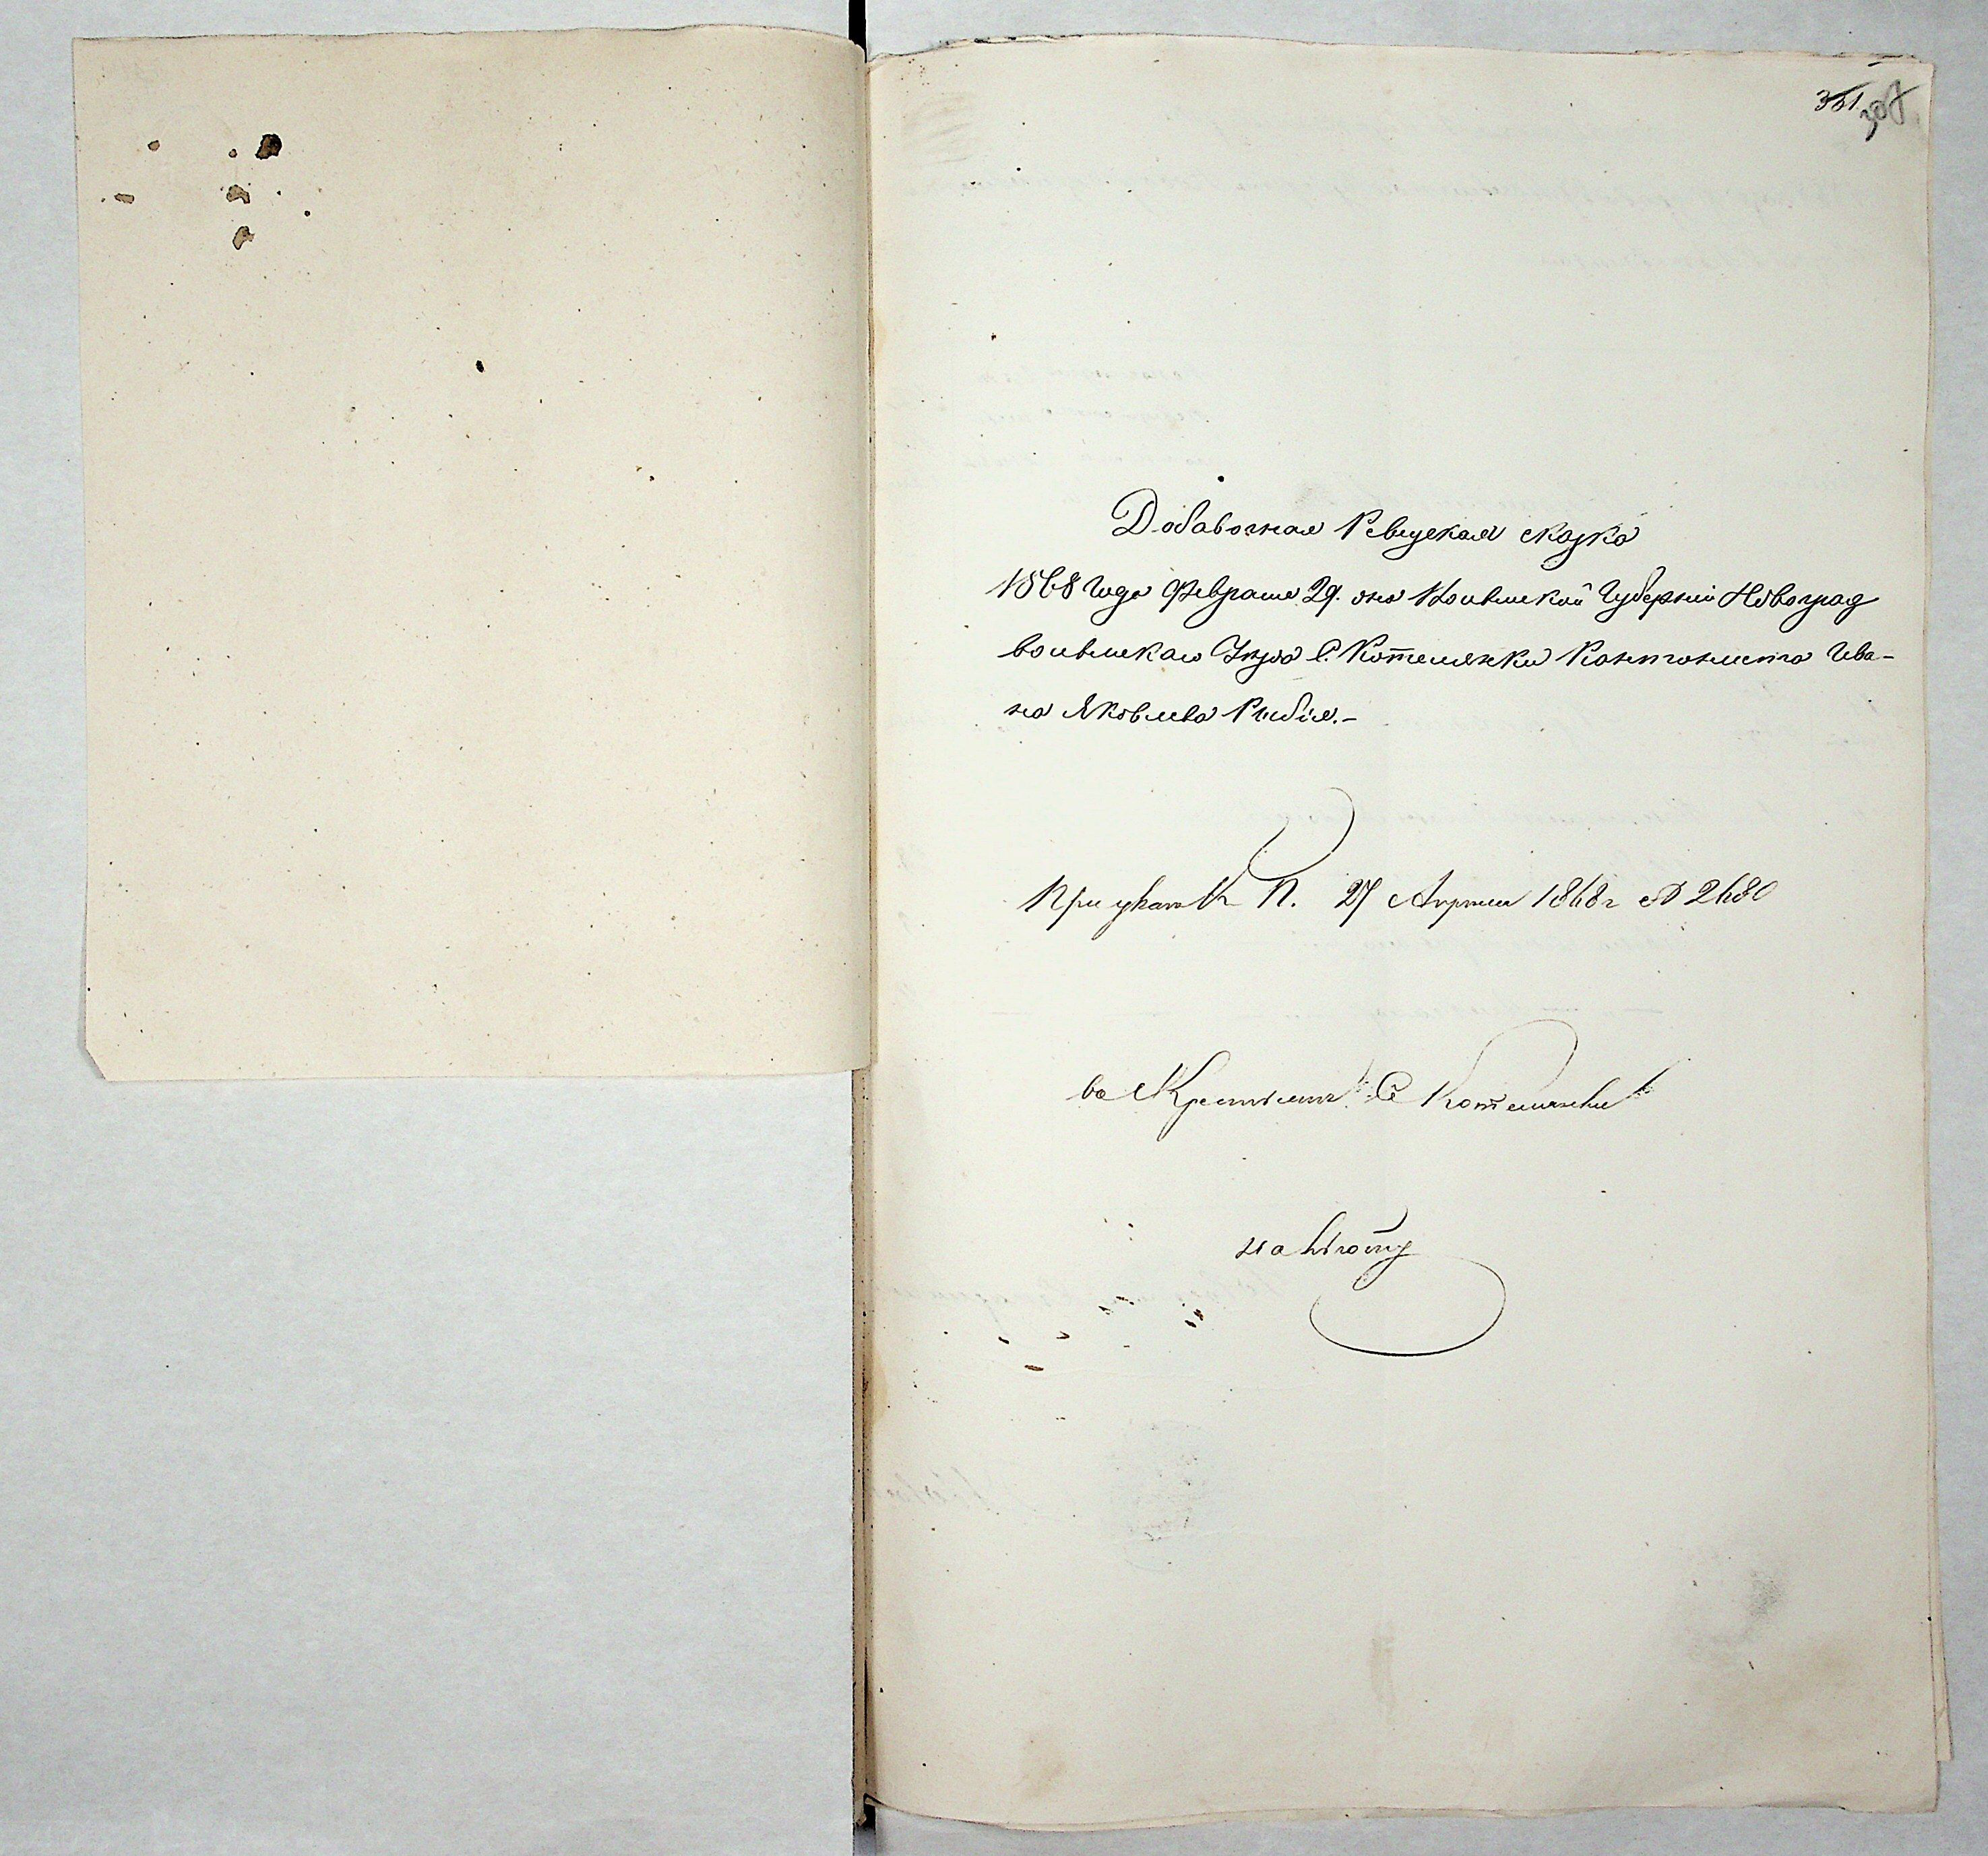 351 308
Добавочная Ревизская сказка
1868 Года Февраля 29. дня Волынской Губерніи Новоград
волынскаго Уезда С. Котелянки Кантониста Ива-
на Яковлева Рибія.-
При указ К П. 27 Апреля 1868 г № 2680
въ Крестьяне С Котелянки
на льготу